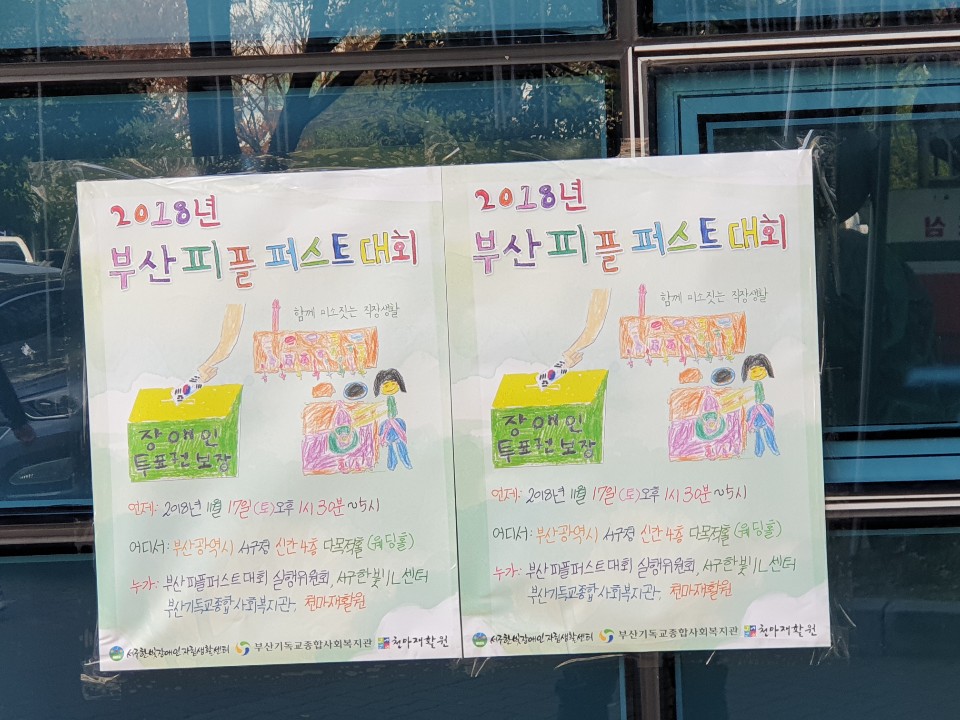 2018년
부산 피플 퍼스트 대회
함께 미소짓는 직장생활
장애인
투표권 보장
언제: 2018년 11월 17일 (토) 오후 1시 30분 ~ 5시
어디서: 부산광역시 서구청 신관 4층 다목적홀 (웨딩홀)
누가: 부산 피플퍼스트 대회 실행위원회, 서구한빛IL센터
부산기독교종합사회복지관, 천마재활원
서구한빛장애인자립생활센터 부산기독교종합사회복지관 천마재활원
2018년
부산 피플 퍼스트 대회
함께 미소짓는 직장생활
장애인
투표권 보장
언제: 2018년 11월 17일 (토) 오후 1시 30분 ~ 5시
어디서: 부산광역시 서구청 신관 4층 다목적홀 (웨딩홀)
누가: 부산 피플퍼스트 대회 실행위원회, 서구한빛IL센터
부산기독교종합사회복지관, 천마재활원
서구한빛장애인자립생활센터 부산기독교종합사회복지관 천마재활원